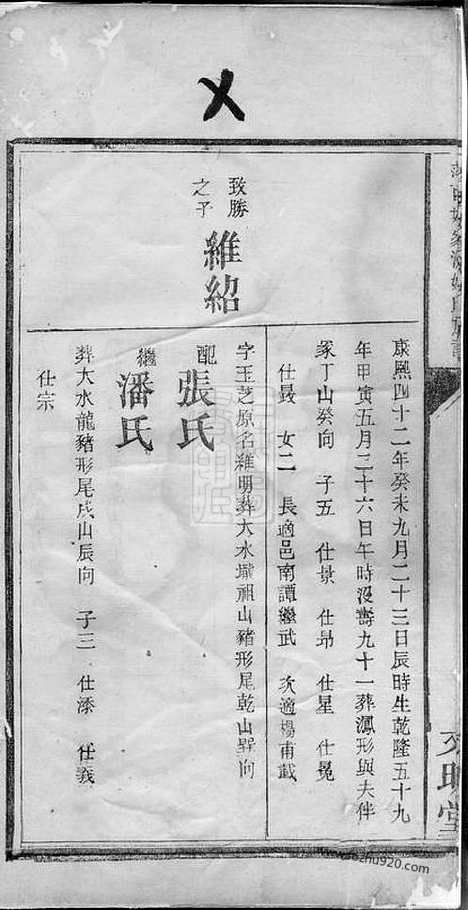 康熙四十二年癸未九月二十三日辰時生乾隆五十九
年甲寅五月三十六日午時沒壽九十一葬鳳形與夫伴
冢丁山癸向 子五 仕景 仕昂 仕星 仕冕
仕晸 女二 長適邑南譚繼武 次適楊甫載
致勝
之子
維紹
字玉芝原名維明葬大水壠祖山豬形尾乾山巽向
配張氏
繼潘氏
葬大水龍豬形尾戌山辰向 子三 仕添 仕義
仕宗